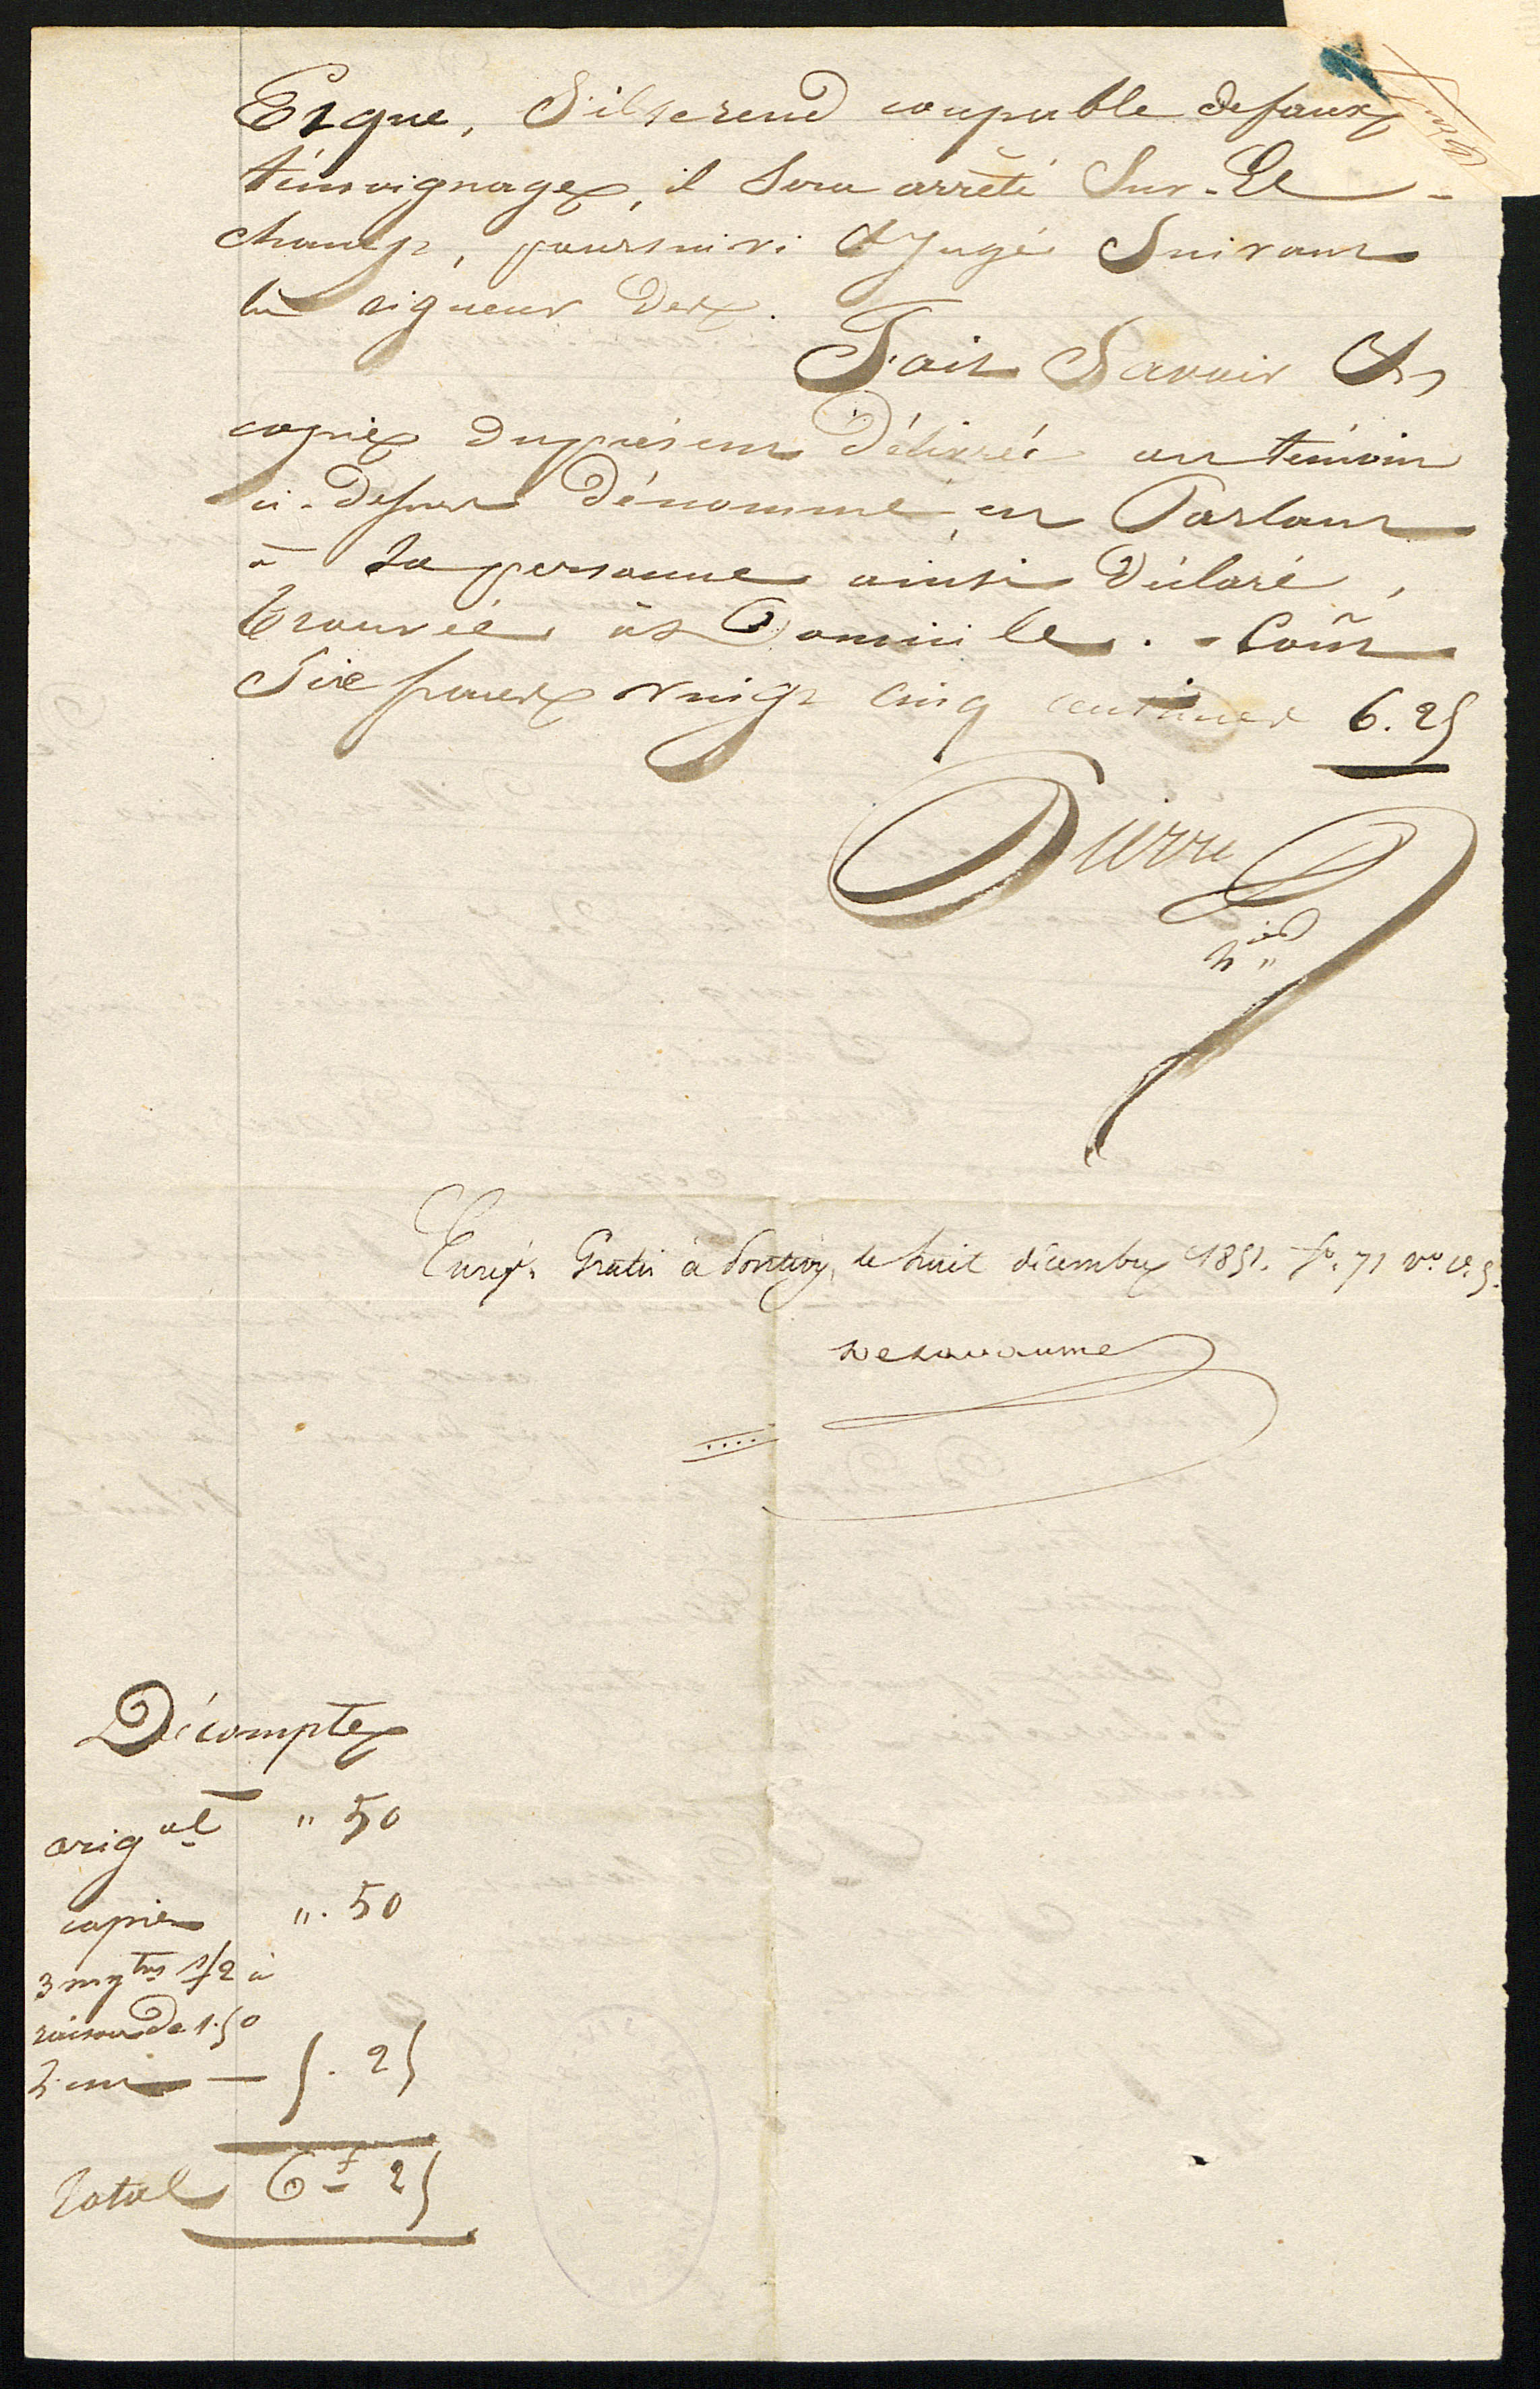 Et que, s'il se rend coupable de faux
témoignage, il sera arrêté sur-le-
champ, poursuivi et jugé suivant
la rigueur des
Fait savoir et
copie du présent délivrée au témoin
ci-dessus dénommé, en parlant
à sa personne ainsi déclaré,
trouvée à domicile. - Coût
six francs vingt cinq centimes 6. 25
Pierre
Enregé. Gratis à Pontivy, le huit décembre 1851. fo. 71 vo. ce. 5.
Décompte
orig al " 50
copie ". 50
3 mytres 1/2 à
raison de 1.50
l'un — 5. 25
Total 6 f 25